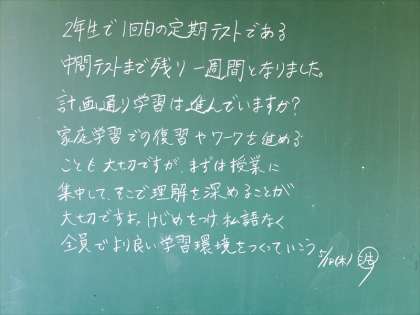 2年生で1回目の定期テストである
中間テストまで残り一週間となりました。
計画通り学習は進んでいますか?
家庭学習での復習やワークを進める
ことも大切ですが、まずは授業に
集中して、そこで理解を深めることが
大切ですよ。けじめをつけ、私語なく
全員でより良い学習環境をつくっていこう
(木)